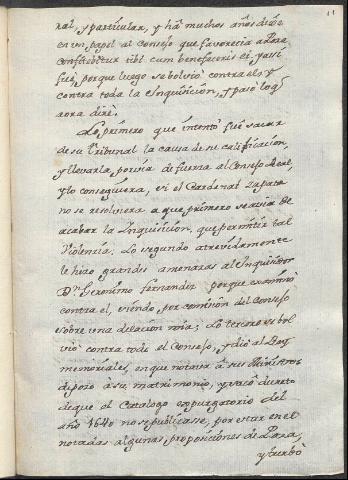 11
ral, y particular, y hà muchos años dixe
en un papel al Consejo que favorecia a Poza
confitebitur tibi cum benefeceris ei, y assi
fuè, porque luego se bolviò contra el, y
contra toda la Inquisicion, y paso lo q̃
aora dirè.
Lo primero que intentò fuè sacar
de su Tribunal la causa de su calificacion,
y llevarla, por via de fuerza al Consejo Real,
y lo consiguiera, si el Cardenal Zapata
no se resolviera a que primero se avia de
acabar la Inquisicion, que permitir tal
Violencia. Lo segundo atrevidamente
le hizo grandes amenazas al Inquisidor
Dn. Geronimo fernandez porque examinò
contra el, siendo, por comision del Consejo
sobre una delacion mia; Lo tercero se bol
viò contra todo el Consejo, y diò al Rey
memoriales, en que notava à sus Ministros
de poco à su matrimonio, y sacò decreto
de que el Catalogo expurgatorio del
año 1640 no se publicasse, por estar en el
notadas algunas, proposiciones de Poza,
y turbò